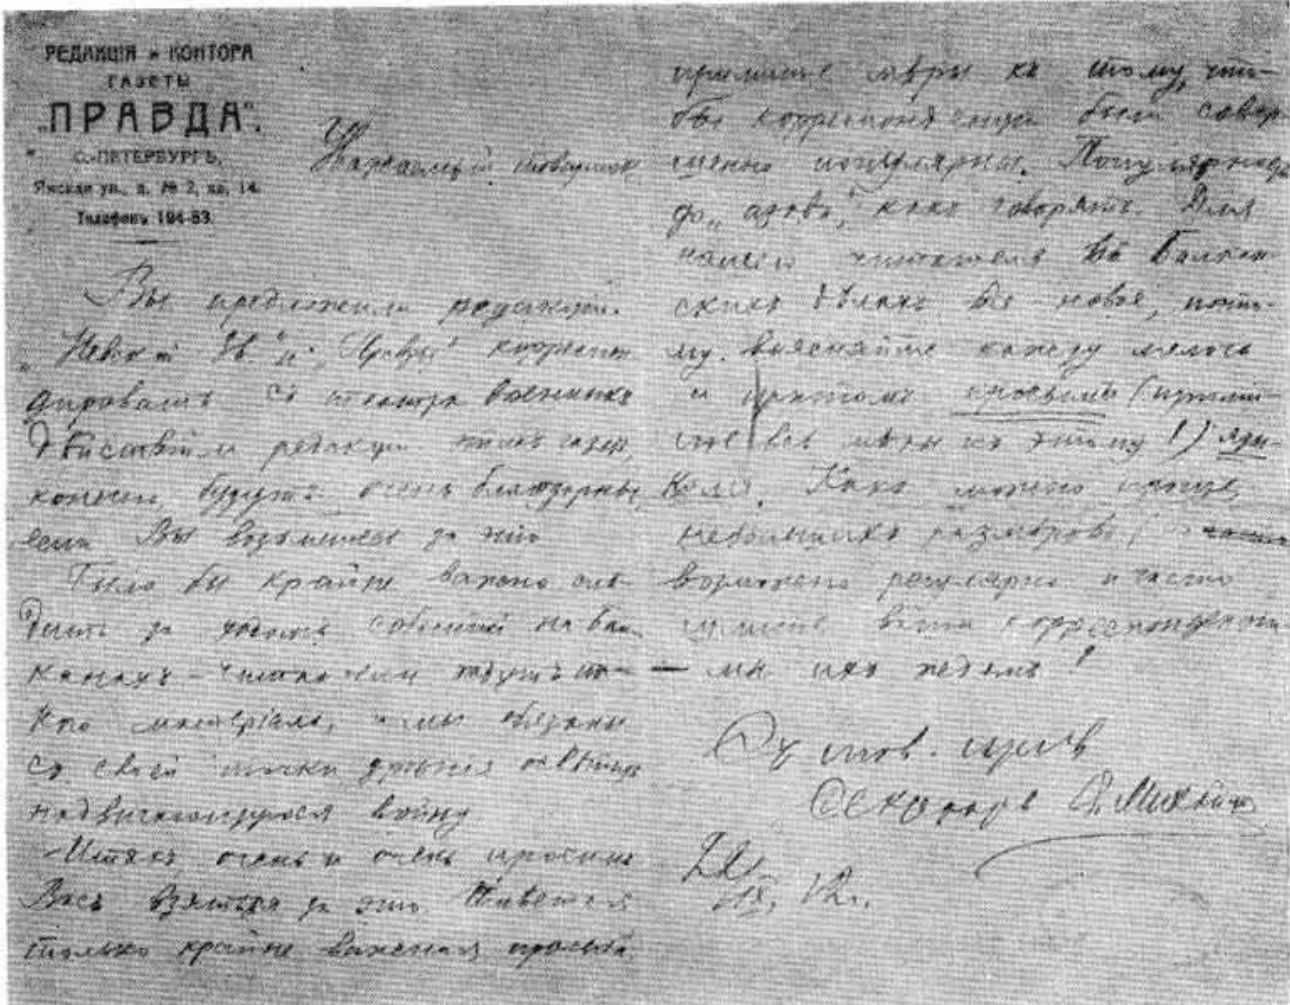 РЕДАКЦІЯ и КОНТОРА
ГАЗЕТЫ
„ПРАВДА“.
С.-ПЕТЕРБУРГЪ,
Ямская ул., д. № 2, кв. 14.
Телефонъ 194-83.
Уважаемый товарищъ
Вы предложили редакціи
„Невской Зв.“ и „Правды“ корреспон
дировать съ театра военныхъ
дѣйствій и редакціи этихъ газетъ,
конечно, будутъ очень благодарны,
если Вы возьметесь за это
Было бы крайне важно слѣ
дить за ходомъ событій на Бал
канахъ – читатели ждутъ
матеріала, и мы обязаны
съ своей точки зрѣнія освѣтить
надвигающуюся войну
Итакъ очень и очень просимъ
Васъ взяться за это. Имѣется
только крайне важная просьба
примите мѣры къ тому, что-
бы корреспонденціи были совер-
шенно популярны. Популярны
до „азовъ“, какъ говорятъ. Для
нашего читателя въ Балкан-
скихъ дѣлахъ все новое, пото-
му выясняйте каждую мелочь
и притомъ простымъ (примі-
те всѣ мѣры къ этому!) язы-
комъ. Какъ можно проще,
небольшихъ размѣровъ (
возможно регулярно и часто
ваши корреспонденціи
— мы ихъ ждемъ!
Съ тов. прив
Секретарь Михайлов
IX. 12.